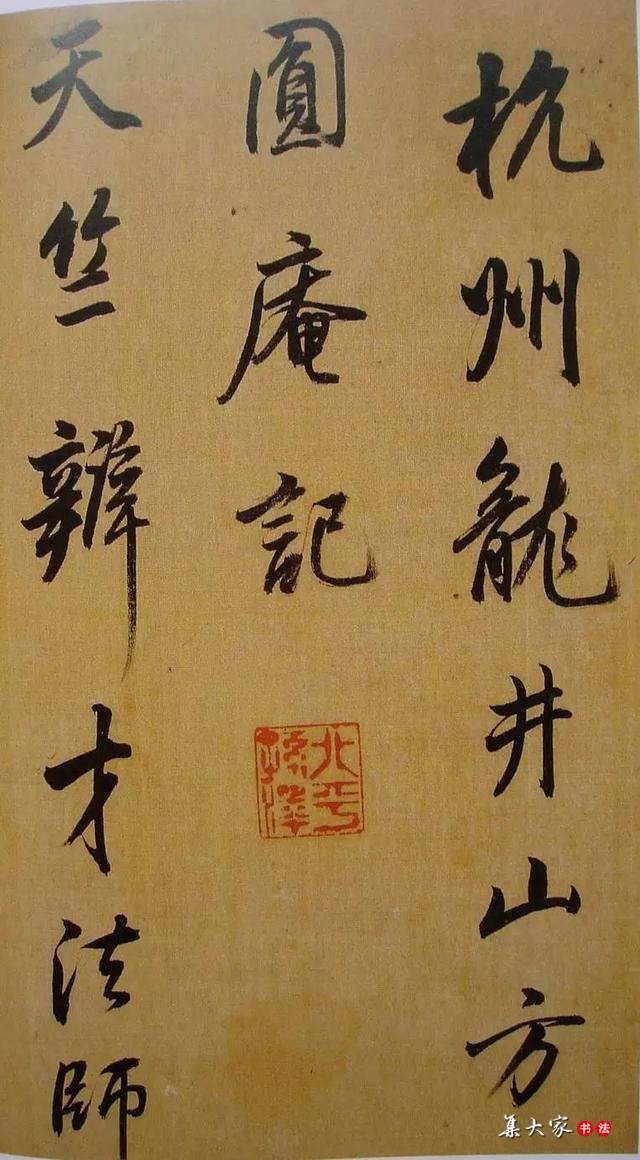 杭州龍井山方
圓庵記
天竺辯才法師
北平
孫澤
集大家书法